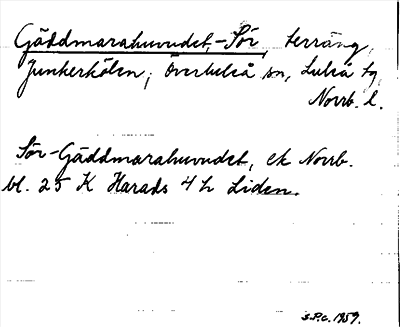 Gäddmarahuvudet, -Sör, terräng,
Junkerhölen, Överluleå sn, Luleå tg,
Norrb. l.
Sör-Gäddmarahuvudet, ek Norrb.
bl. 25 K Harads 4 h Liden.
S.P.C. 1959.